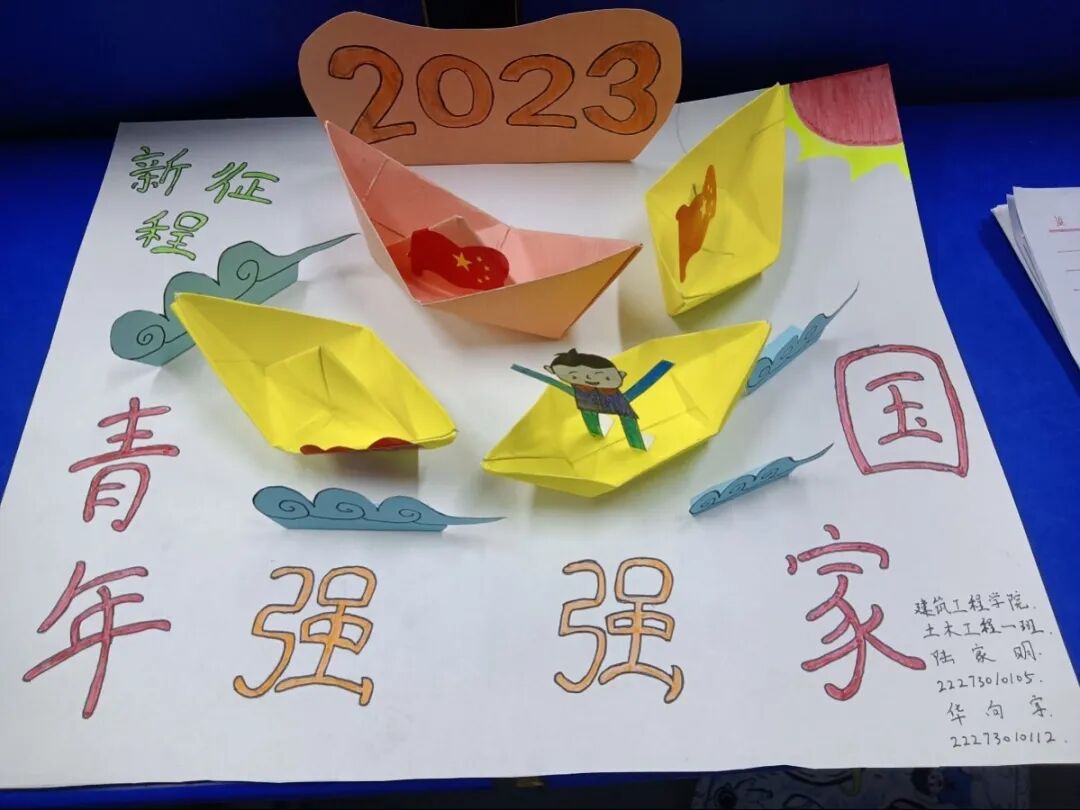 2023
新征
程
青年
强
强
国家
建筑工程学院.
土木工程一班.
陆家明.
22273010105.
华向
22273010112.